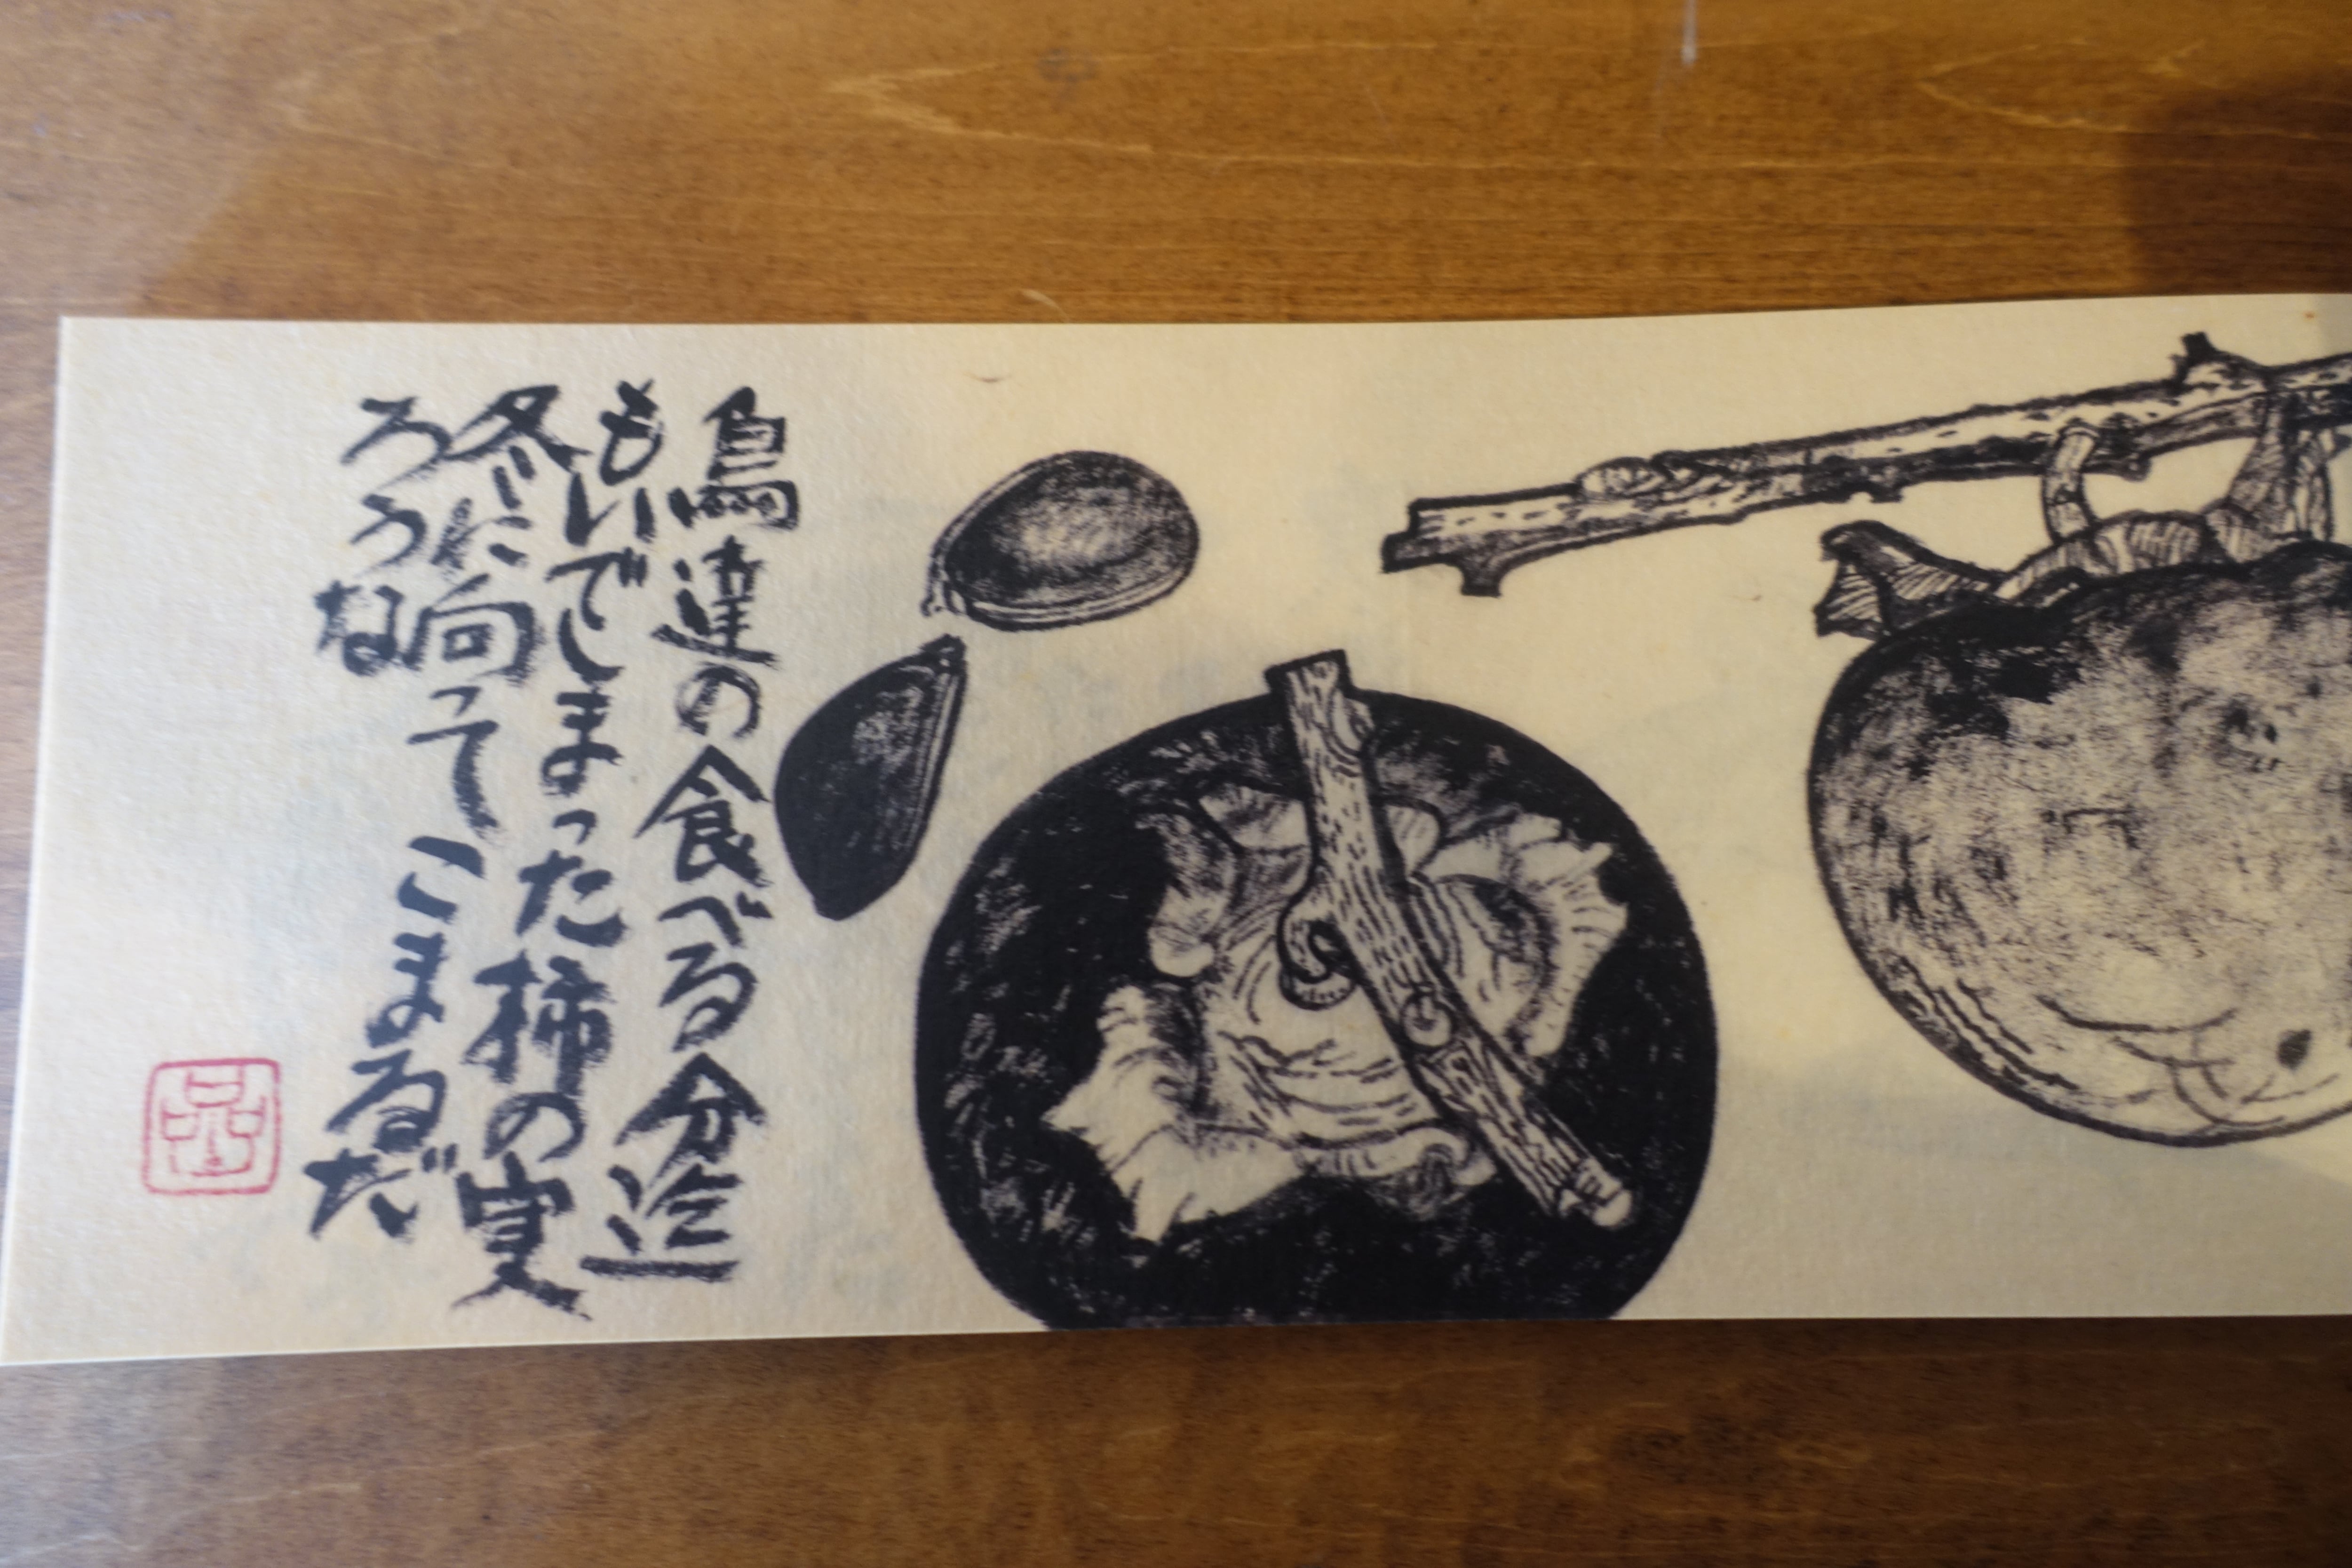 鳥達の食べる分迄
もいでしまった柿の実
冬に向ってこまるだ
ろうな